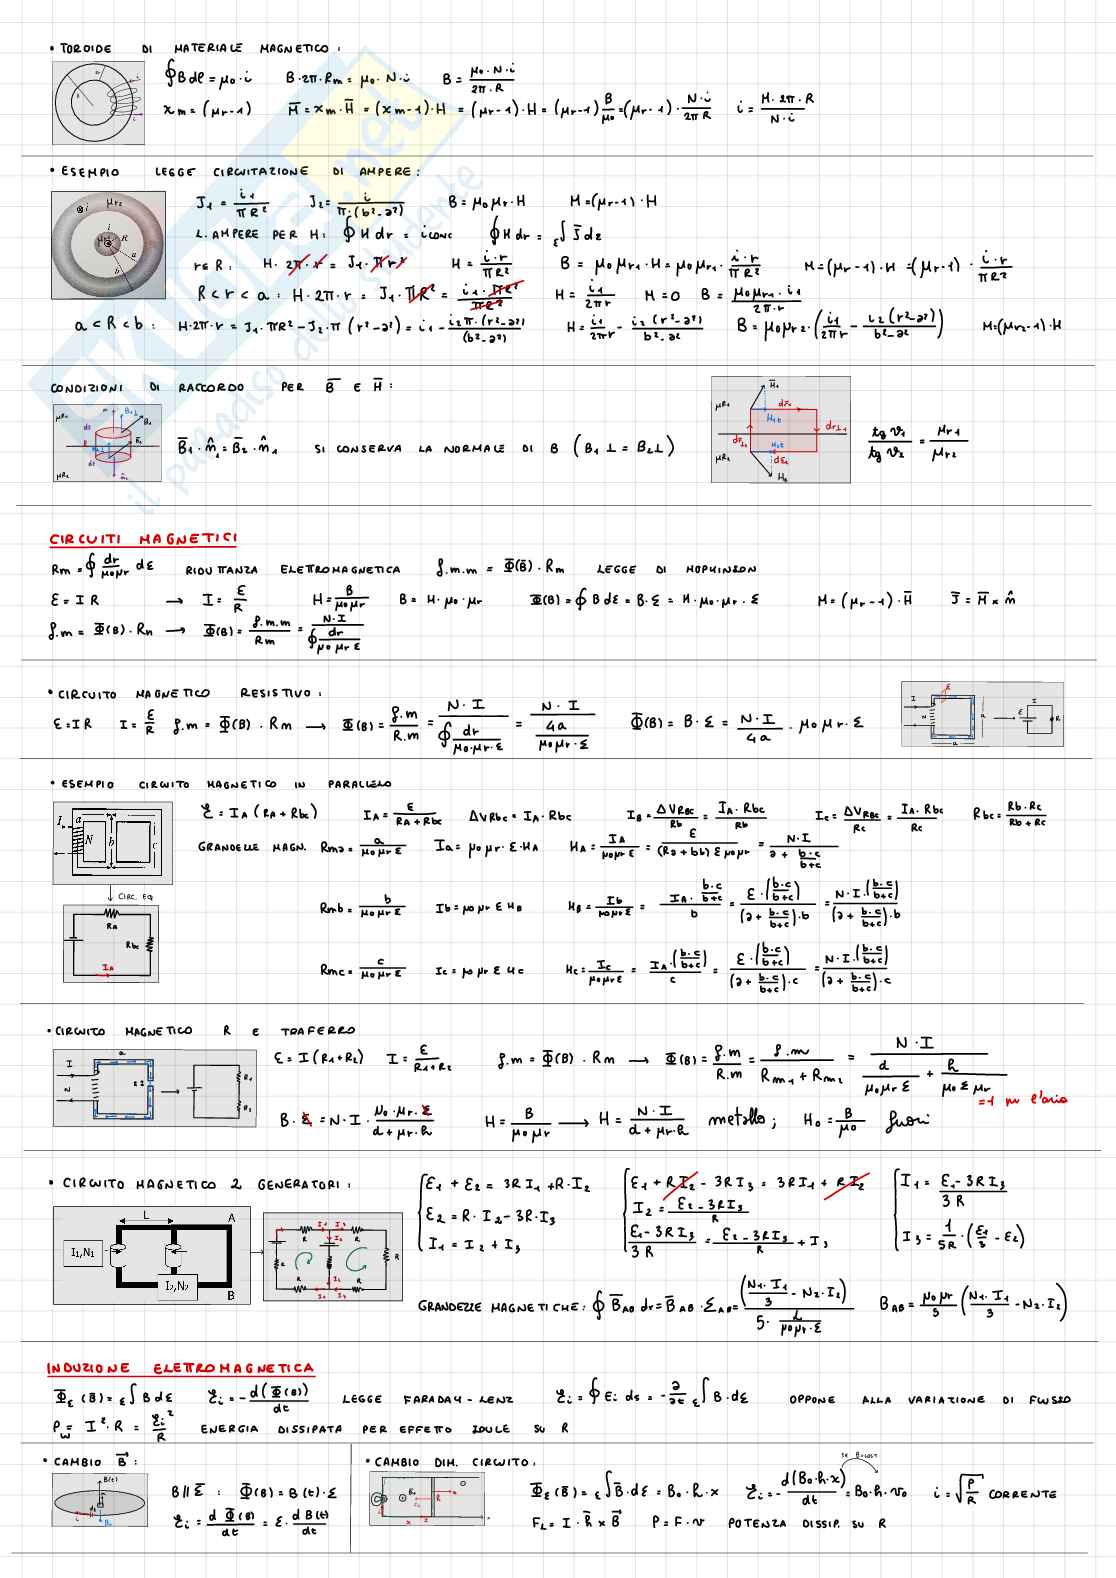 • TOROIDE DI MATERIALE MAGNETICO:
∮Bdl = μ0·i   B·2π·Rm = μ0·N·i   B = μ0·N·i / 2π·R
xm = (μr-1)   M̄ = xm·H̄ = (xm-1)·H = (μr-1)·H = (μr-1) B/μ0 = (μr-1)· N·i / 2πR   i = H·2π·R / N·i
• ESEMPIO LEGGE CIRCUITAZIONE DI AMPERE:
J1 = i1 / πR²   J2 = i / π·(b²-a²)   B = μ0μr·H   M = (μr-1)·H
L. AMPERE PER H: ∮H dr = iconc   ∮H dr = Σ∫ J̄ dΣ
r∈R: H·2π·r = J1·πr²   H = i·r / πR²   B = μ0μr1·H = μ0μr1· i·r / πR²   M = (μr-1)·H = (μr-1)· i·r / πR²
R<r<a: H·2π·r = J1·πR² = i1·πR² / πR²   H = i1 / 2πr   M=0   B = μ0μr1·i1 / 2π·r
a<R<b: H·2π·r = J1·πR² - J2·π(r²-a²) = i1 - i2π·(r²-a²) / (b²-a²)   H = i1/2πr - i2(r²-a²) / b²-a²   B = μ0μr2·(i1/2πr - i2(r²-a²) / b²-a²)   M=(μr2-1)·H
CONDIZIONI DI RACCORDO PER B̄ E H̄:
B̄1·n̂1 = B̄2·n̂1   SI CONSERVA LA NORMALE DI B (B1⊥ = B2⊥)   tg ϑ1 / tg ϑ2 = μr1 / μr2
CIRCUITI MAGNETICI
Rm = ∮ dr / μ0μr dΣ   RIDUTTANZA ELETTROMAGNETICA   f.m.m = Φ(B̄)·Rm   LEGGE DI HOPKINSON
ε = I R → I = ε/R   H = B / μ0μr   B = H·μ0·μr   Φ(B) = ∮B dΣ = B·Σ = H·μ0·μr·Σ   M = (μr-1)·H̄   J̄ = M̄ × n̂
f.m = Φ(B)·Rm → Φ(B) = f.m.m / Rm = N·I / ∮ dr / μ0 μr Σ
• CIRCUITO MAGNETICO RESISTIVO:
ε = I R   I = ε/R   f.m = Φ(B)·Rm → Φ(B) = f.m / R.m = N·I / ∮ dr / μ0·μr·Σ = N·I / 4a / μ0μr·Σ   Φ(B) = B·Σ = N·I / 4a · μ0 μr·Σ
• ESEMPIO CIRCUITO MAGNETICO IN PARALLELO
ε = IA (RA + Rbc)   IA = ε / RA+Rbc   ΔVRbc = IA·Rbc   IB = ΔVRBC / Rb = IA·Rbc / Rb   Ic = ΔVRBC / Rc = IA·Rbc / Rc   Rbc = Rb·Rc / Rb+Rc
GRANDEZZE MAGN.   Rma = a / μ0 μr Σ   Ia = μ0 μr·Σ·HA   HA = IA / μ0μr Σ = ε / (Ra + bb) Σ μ0μr = N·I / a + b·c / b+c
CIRC. EQ
Rmb = b / μ0 μr Σ   Ib = μ0 μr Σ HB   HB = Ib / μ0μr Σ = IA· b·c / b+c / b = ε·(b·c / b+c) / (a + b·c / b+c)·b = N·I·(b·c / b+c) / (a + b·c / b+c)·b
Ra
Rbc
IA
Rmc = c / μ0 μr Σ   Ic = μ0 μr Σ Hc   Hc = Ic / μ0μr Σ = IA·(b·c / b+c) / c = ε·(b·c / b+c) / (a + b·c / b+c)·c = N·I·(b·c / b+c) / (a + b·c / b+c)·c
• CIRCUITO MAGNETICO R E TRAFERRO
ε = I(R1+R2)   I = ε / R1+R2   f.m = Φ(B)·Rm → Φ(B) = f.m / R.m = f.m / Rm1 + Rm2 = N·I / d / μ0μr Σ + h / μ0 Σ μr
=1 per l'aria
B·Σ = N·I· μ0·μr·Σ / d+μr·h   H = B / μ0μr → H = N·I / d+μr·h metallo;   H0 = B/μ0 fuori
• CIRCUITO MAGNETICO 2 GENERATORI:
ε1 + ε2 = 3R I1 + R·I2   ε1 + R I2 - 3R I3 = 3R I1 + R I2   I1 = ε1 - 3R I3 / 3R
ε2 = R·I2 - 3R·I3   I2 = ε2 - 3R I3 / R
I1 = I2 + I3   ε1 - 3R I3 / 3R = ε2 - 3R I3 / R + I3   I3 = 1/5R·(ε1/3 - ε2)
L A
I1,N1
I2,N2
B
GRANDEZZE MAGNETICHE: ∮ B̄AB dr = B̄AB·ΣAB = (N1·I1 / 3 - N2·I2) / 5· L / μ0μr·Σ   BAB = μ0μr / 5 (N1·I1 / 3 - N2·I2)
INDUZIONE ELETTROMAGNETICA
ΦΣ(B̄) = Σ∫ B dΣ   εi = - d(Φ(B)) / dt   LEGGE FARADAY-LENZ   εi = ∮ Ei ds = - ∂/∂t Σ∫ B·dΣ   OPPONE ALLA VARIAZIONE DI FLUSSO
Pw = I²·R = εi² / R   ENERGIA DISSIPATA PER EFFETTO JOULE SU R
• CAMBIO B̄:
B // Σ̄ : Φ(B) = B(t)·Σ
εi = d Φ(B) / dt = Σ· d B(t) / dt
• CAMBIO DIM. CIRCUITO:
se B=cost
ΦΣ(B̄) = Σ∫ B̄·dΣ = B0·h·x   εi = - d(B0·h·x) / dt = B0·h·v0   i = √P/R CORRENTE
FL = I·h̄ × B̄   P = F·v   POTENZA DISSIP. SU R